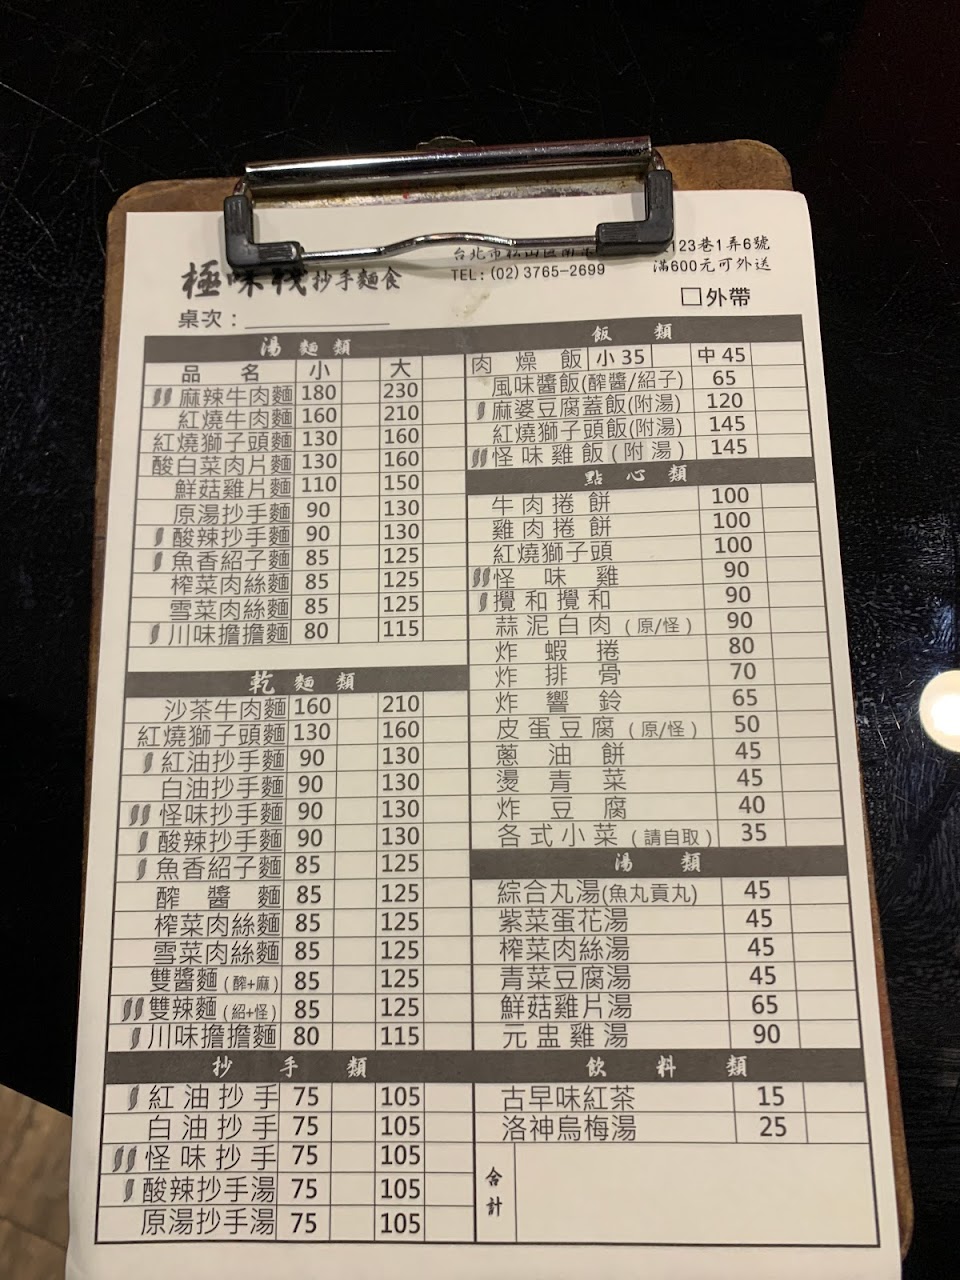 台北市松山區南
123巷1弄6號
極味棧抄手麵食
TEL:(02)3765-2699
滿600元可外送
桌次:
□外帶
湯麵類
品名 小 大
麻辣牛肉麵 180 230
紅燒牛肉麵 160 210
紅燒獅子頭麵 130 160
酸白菜肉片麵 130 160
鮮菇雞片麵 110 150
原湯抄手麵 90 130
酸辣抄手麵 90 130
魚香紹子麵 85 125
榨菜肉絲麵 85 125
雪菜肉絲麵 85 125
川味擔擔麵 80 115
乾麵類
沙茶牛肉麵 160 210
紅燒獅子頭麵 130 160
紅油抄手麵 90 130
白油抄手麵 90 130
怪味抄手麵 90 130
酸辣抄手麵 90 130
魚香紹子麵 85 125
醡醬麵 85 125
榨菜肉絲麵 85 125
雪菜肉絲麵 85 125
雙醬麵(醡+麻) 85 125
雙辣麵(紹+怪) 85 125
川味擔擔麵 80 115
抄手類
紅油抄手 75 105
白油抄手 75 105
怪味抄手 75 105
酸辣抄手湯 75 105
原湯抄手湯 75 105
飯類
肉燥飯 小35 中45
風味醬飯(醡醬/紹子) 65
麻婆豆腐蓋飯(附湯) 120
紅燒獅子頭飯(附湯) 145
怪味雞飯(附湯) 145
點心類
牛肉捲餅 100
雞肉捲餅 100
紅燒獅子頭 100
怪味雞 90
攪和攪和 90
蒜泥白肉(原/怪) 90
炸蝦捲 80
炸排骨 70
炸響鈴 65
皮蛋豆腐(原/怪) 50
蔥油餅 45
燙青菜 45
炸豆腐 40
各式小菜(請自取) 35
湯類
綜合丸湯(魚丸貢丸) 45
紫菜蛋花湯 45
榨菜肉絲湯 45
青菜豆腐湯 45
鮮菇雞片湯 65
元盅雞湯 90
飲料類
古早味紅茶 15
洛神烏梅湯 25
合計